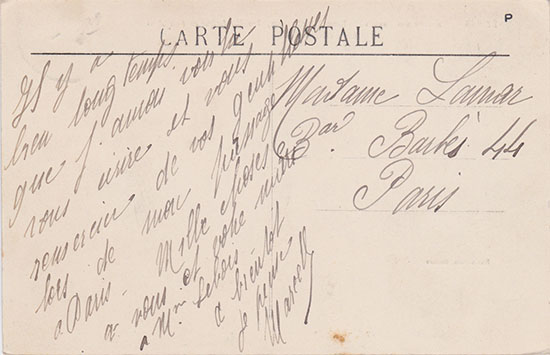 P
CARTE POSTALE
Il y a
bien longtemps
que j'aurais voulu
vous écrire et vous
remercier de vos gentillesses
lors de mon passage
à Paris. Mille choses
à vous et votre mari
à Mme
à bientôt
je
Marcelle
Madame Lamar
Bar Barbès 44
Paris